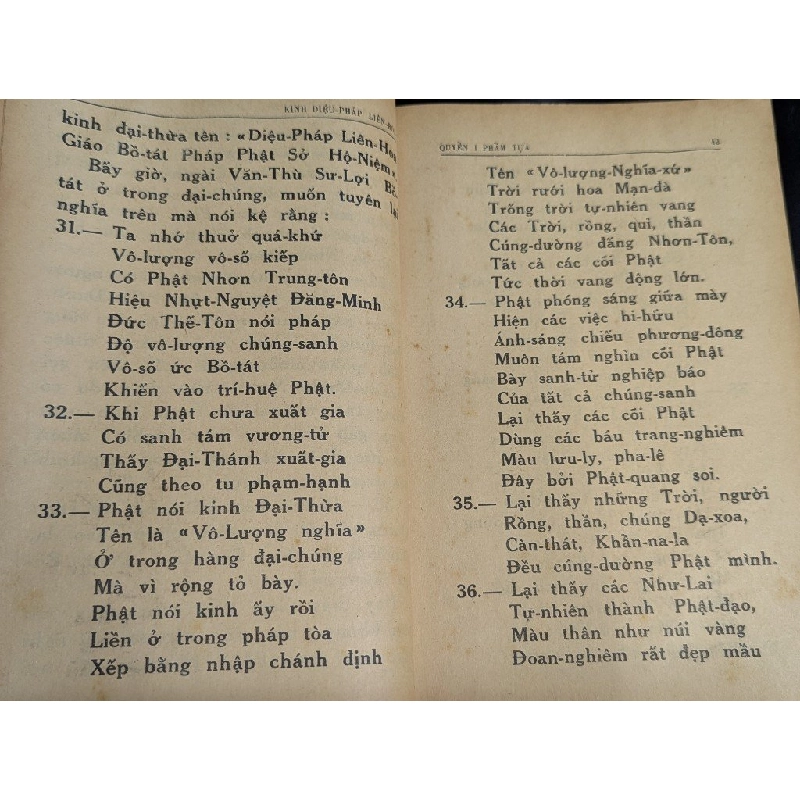 KINH DIỆU-PHÁP LIÊN-
kinh đại-thừa tên : «Diệu-Pháp Liên-Hoa
Giáo Bồ-tát Pháp Phật Sở Hộ-Niệm»
Bấy giờ, ngài Văn-Thù Sư-Lợi Bồ-
tát ở trong đại-chúng, muốn tuyên lại
nghĩa trên mà nói kệ rằng :
31.— Ta nhớ thuở quá-khứ
Vô-lượng vô-số kiếp
Có Phật Nhơn Trung-tôn
Hiệu Nhựt-Nguyệt Đăng-Minh
Đức Thế-Tôn nói pháp
Độ vô-lượng chúng-sanh
Vô-số ức Bồ-tát
Khiến vào trí-huệ Phật.
32.— Khi Phật chưa xuất gia
Có sanh tám vương-tử
Thấy Đại-Thánh xuất-gia
Cũng theo tu phạm-hạnh
33.— Phật nói kinh Đại-Thừa
Tên là «Vô-Lượng nghĩa»
Ở trong hàng đại-chúng
Mà vì rộng tỏ bày.
Phật nói kinh ấy rồi
Liền ở trong pháp tòa
Xếp bằng nhập chánh định
QUYỂN I PHẨM TỰA
Tên «Vô-lượng-Nghĩa-xứ»
Trời rưới hoa Mạn-dà
Trống trời tự-nhiên vang
Các Trời, rồng, quỉ, thần
Cúng-dường đấng Nhơn-Tôn,
Tất cả các cõi Phật
Tức thời vang động lớn.
34.— Phật phóng sáng giữa mày
Hiện các việc hi-hữu
Ánh-sáng chiếu phương-đông
Muôn tám nghìn cõi Phật
Bày sanh-tử nghiệp báo
Của tất cả chúng-sanh
Lại thấy các cõi Phật
Dùng các báu trang-nghiêm
Màu lưu-ly, pha-lê
Đây bởi Phật-quang soi.
35.— Lại thấy những Trời, người
Rồng, thần, chúng Dạ-xoa,
Càn-thát, Khẩn-na-la
Đều cúng-dường Phật mình.
36.— Lại thấy các Như-Lai
Tự-nhiên thành Phật-đạo,
Màu thân như núi vàng
Đoan-nghiêm rất đẹp mầu